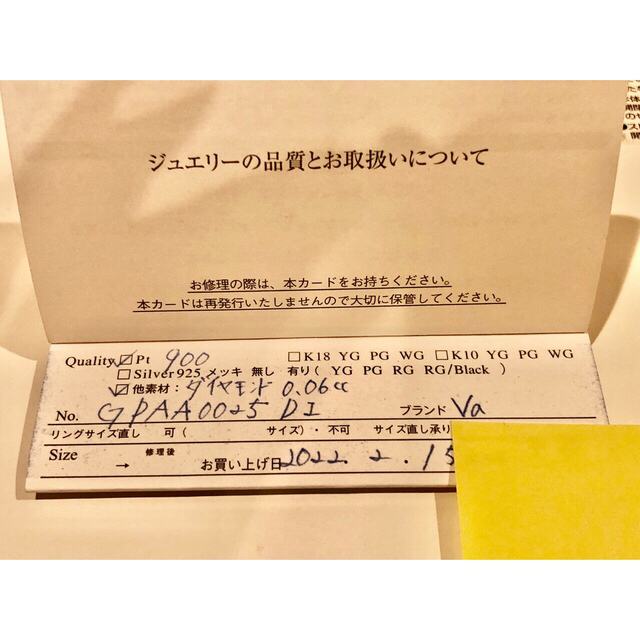 ジュエリーの品質とお取扱いについて
お修理の際は、本カードをお持ちください。
本カードは再発行いたしませんので大切に保管してください。
Quality ☑Pt 900 □K18 YG PG WG □K10 YG PG WG
□Silver925 メッキ 無し 有り( YG PG RG RG/Black )
☑他素材: ダイヤモンド 0.06ct
No. GPAA0025 DI ブランド Va
リングサイズ直し 可( サイズ)・不可 サイズ直し承り
Size → 修理後 お買い上げ日 2022. 2. 15